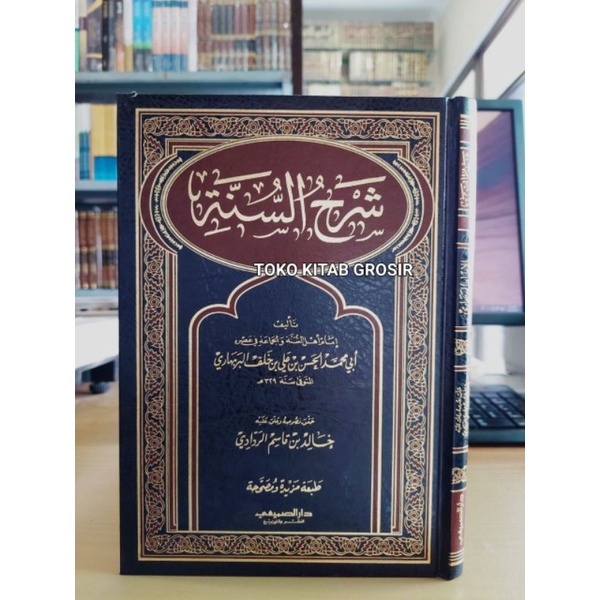 شَرْحُ السُّنَّةِ
TOKO KITAB GROSIR
تأليف
إمام أهل السنة والجماعة في عصره
أبي محمد الحسن بن علي بن خلف البربهاري
المتوفى سنة ٣٢٩ هـ
حقق نصوصه وعلق عليه
خالد بن قاسم الردادي
طبعة مزيدة ومصححة
دار الصميعي
للنشر والتوزيع